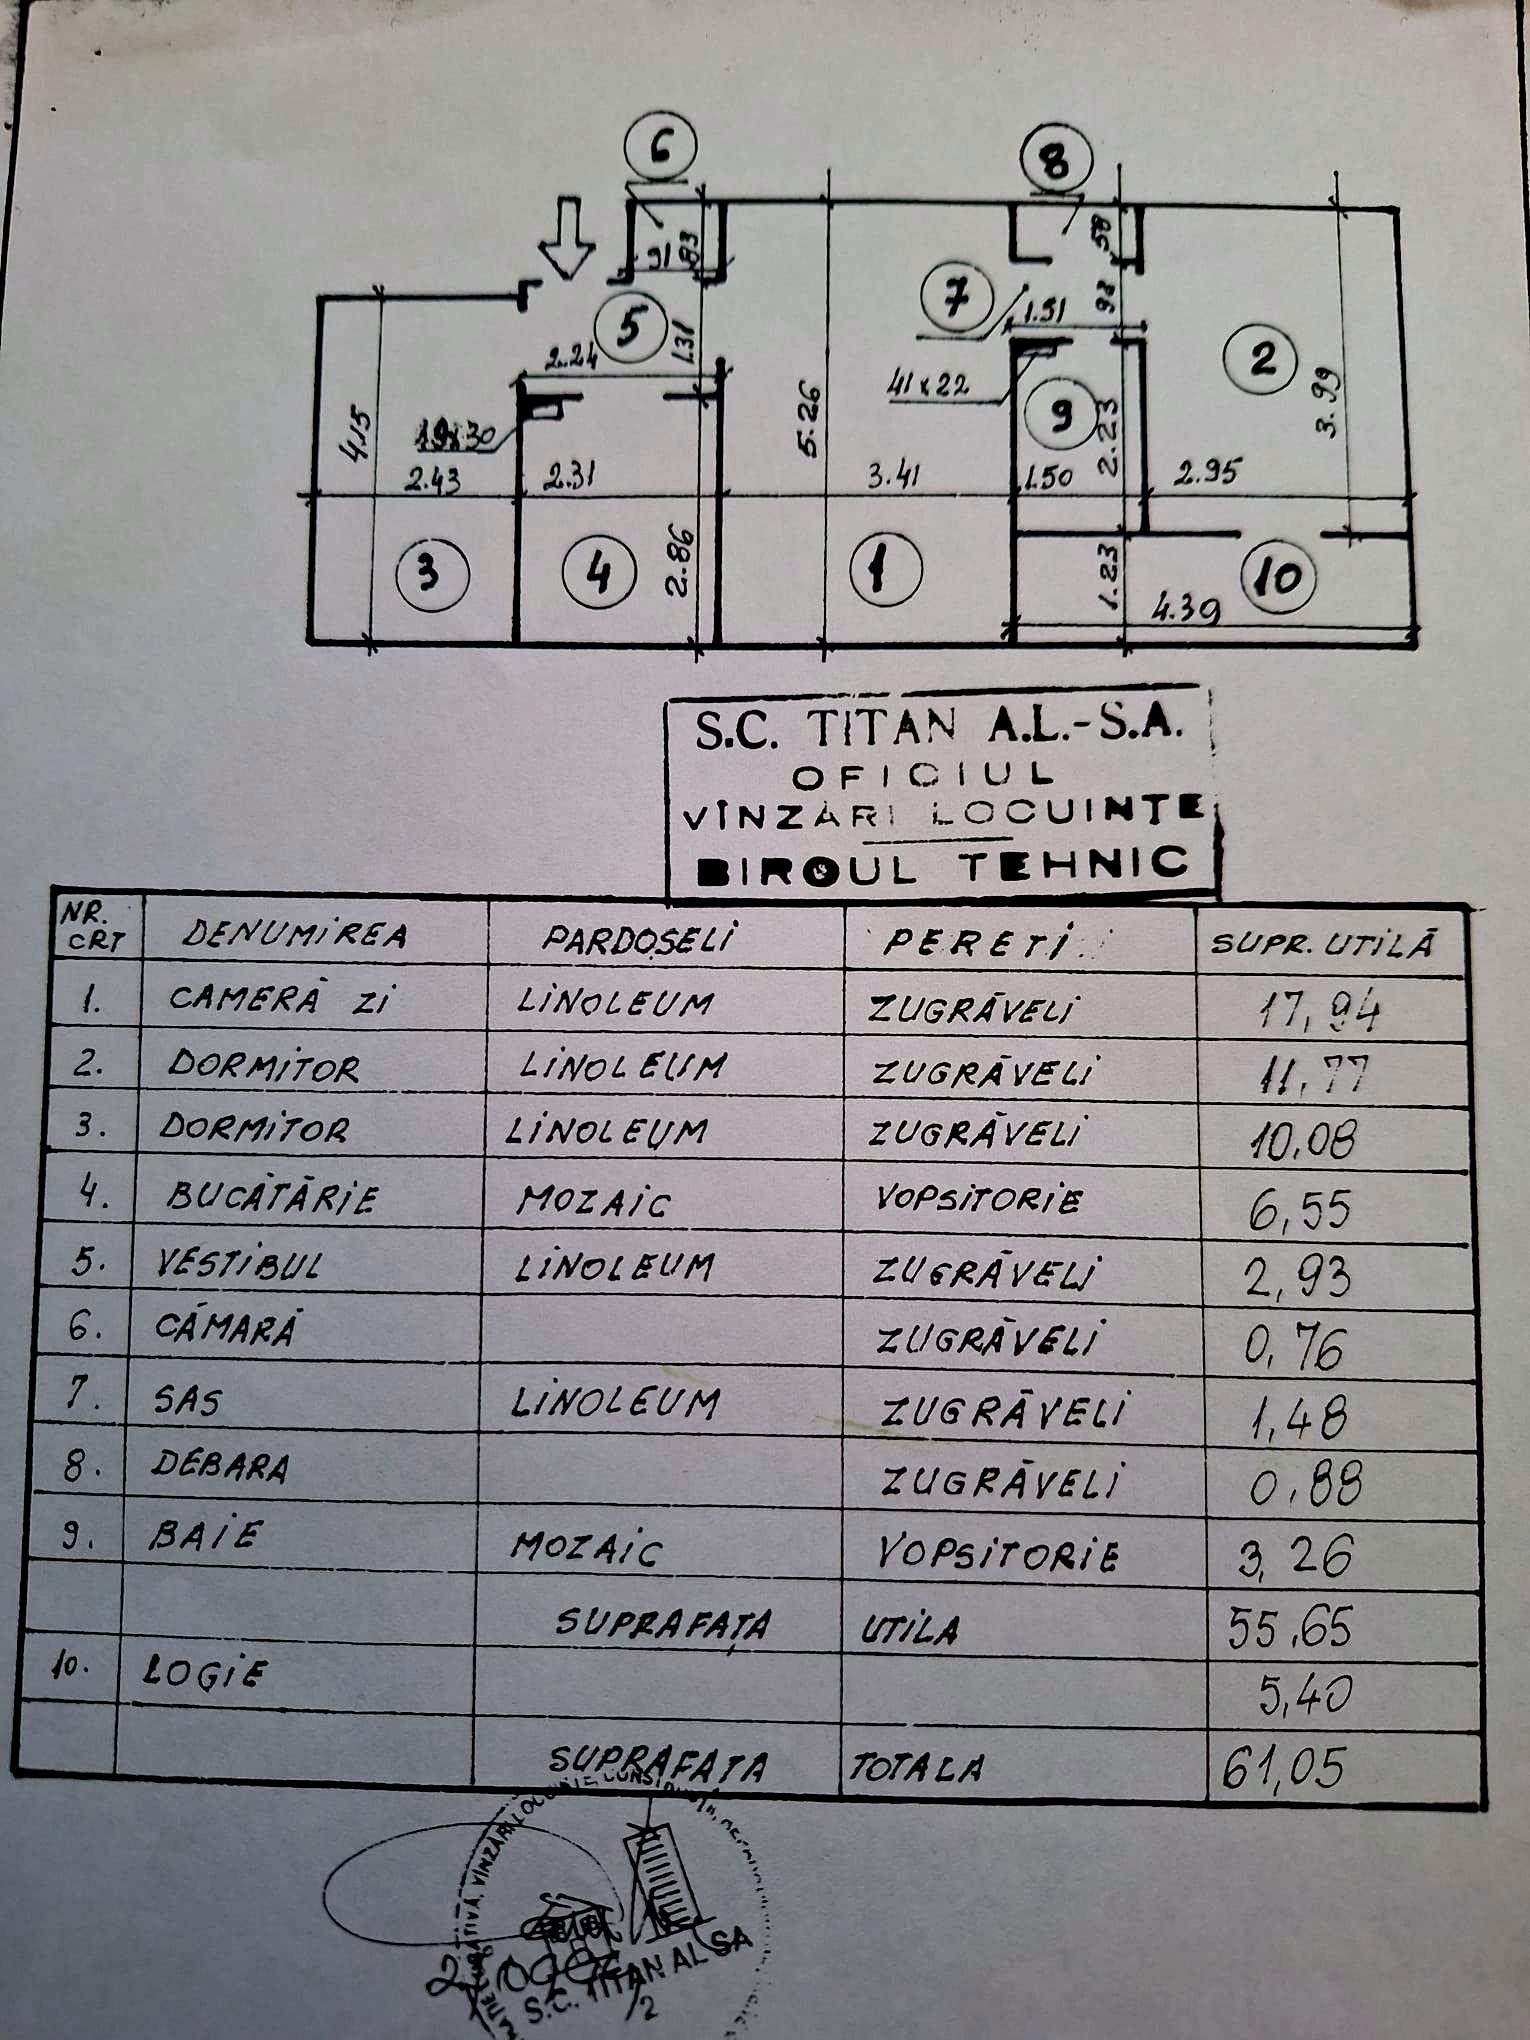 6
8
91
83
58
7
1.51
93
5
2.24
1.31
2
41x22
9
4.15
5.26
2.23
3.99
2.43
2.31
3.41
1.50
2.95
3
4
2.86
1
1.23
10
4.39
S.C. TITAN A.L.-S.A.
OFICIUL
VÎNZĂRI LOCUINTE
BIROUL TEHNIC
NR. CRT DENUMIREA PARDOȘELI PERETI SUPR. UTILĂ
1. CAMERĂ ZI LINOLEUM ZUGRĂVELI 17,94
2. DORMITOR LINOLEUM ZUGRĂVELI 11,77
3. DORMITOR LINOLEUM ZUGRĂVELI 10,08
4. BUCĂTĂRIE MOZAIC VOPSITORIE 6,55
5. VESTIBUL LINOLEUM ZUGRĂVELI 2,93
6. CĂMARĂ ZUGRĂVELI 0,76
7. SAS LINOLEUM ZUGRĂVELI 1,48
8. DEBARA ZUGRĂVELI 0,88
9. BAIE MOZAIC VOPSITORIE 3,26
SUPRAFAȚA UTILA 55,65
10. LOGIE 5,40
SUPRAFAȚA TOTALA 61,05
VÎNZĂRI LOCUINȚE
S.C. TITAN AL SA